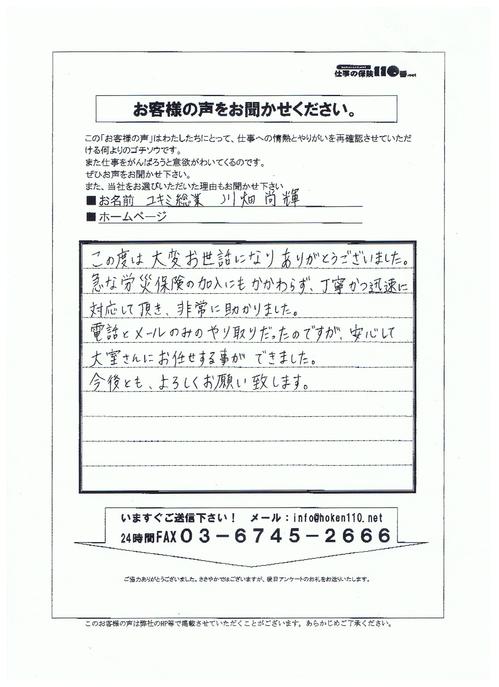 仕事の保険110番.net
お客様の声をお聞かせください。
この「お客様の声」はわたしたちにとって、仕事への情熱とやりがいを再確認させていただ
ける何よりのゴチソウです。
また仕事をがんばろうと意欲がわいてくるのです。
ぜひお声をお聞かせ下さい。
また、当社をお選びいただいた理由もお聞かせ下さい
■お名前 ユキミ総業 川畑 尚輝
■ホームページ
この度は大変お世話になりありがとうございました。
急な労災保険の加入にもかかわらず、丁寧かつ迅速に
対応して頂き、非常に助かりました。
電話とメールのみのやり取りだったのですが、安心して
大室さんにお任せする事ができました。
今後とも、よろしくお願い致します。
いますぐご送信下さい! メール:info@hoken110.net
24時間FAX03-6745-2666
ご協力ありがとうございました。ささやかではございますが、後日アンケートのお礼をお送りいたします。
このお客様の声は弊社のHP等で掲載させていただくことがございます。あらかじめご了承ください。